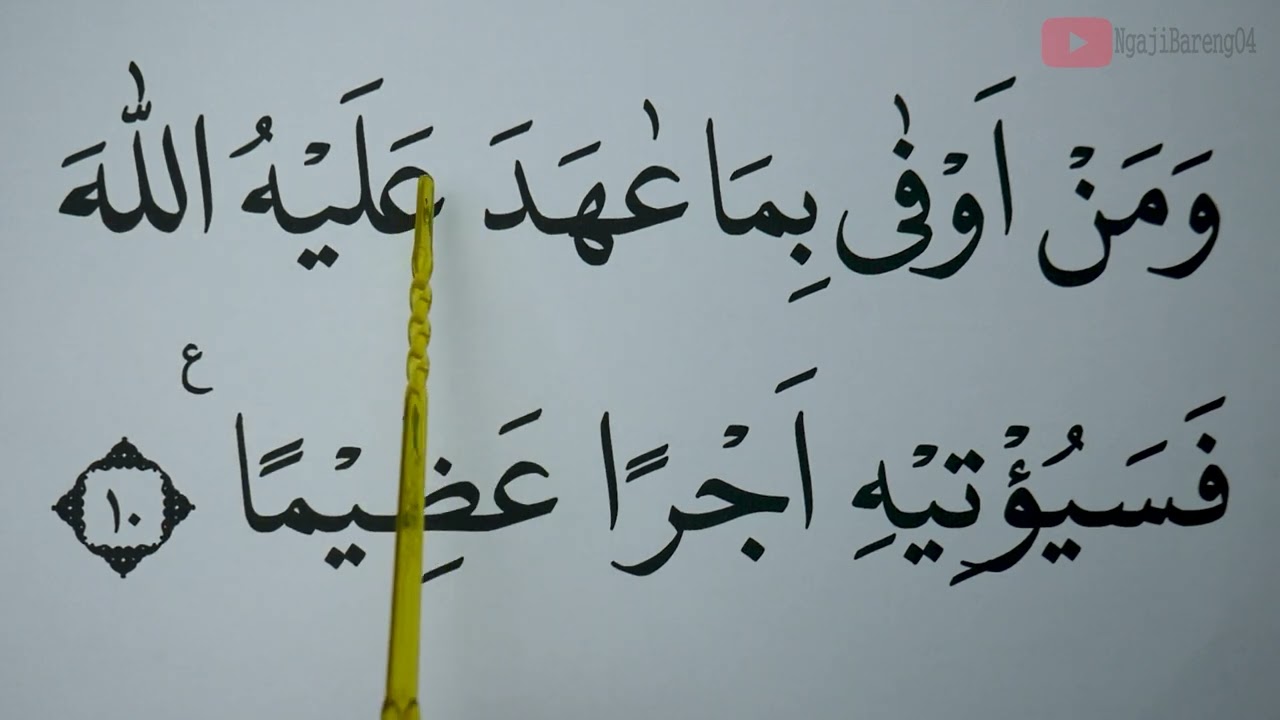 NgajiBareng04
وَمَنْ اَوْفٰى بِمَا عٰهَدَ عَلَيْهُ اللّٰهَ
فَسَيُؤْتِيْهِ اَجْرًا عَظِيْمًا ع ١٠